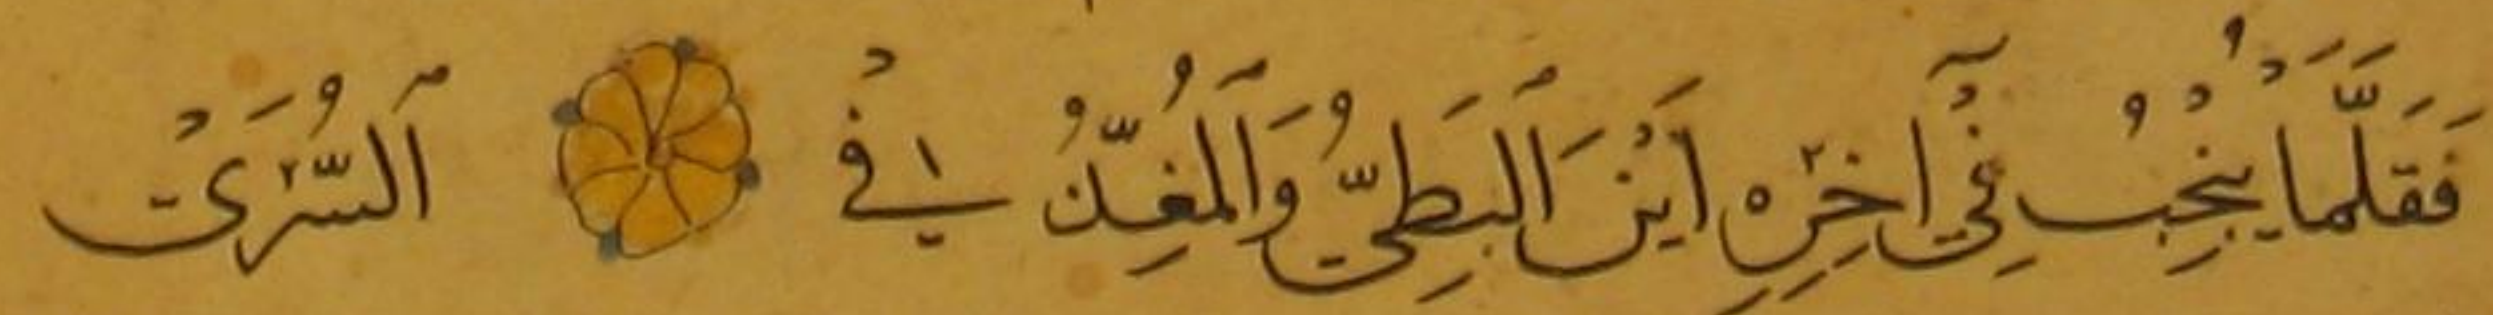 فَقَلَّمَا يُنْجِبُ فِيْ آخِرِهِ اَيْنَ اَلْبَطِيُّ وَاَلْمُغِذُّ فِيْ اَلسُّرَىْ